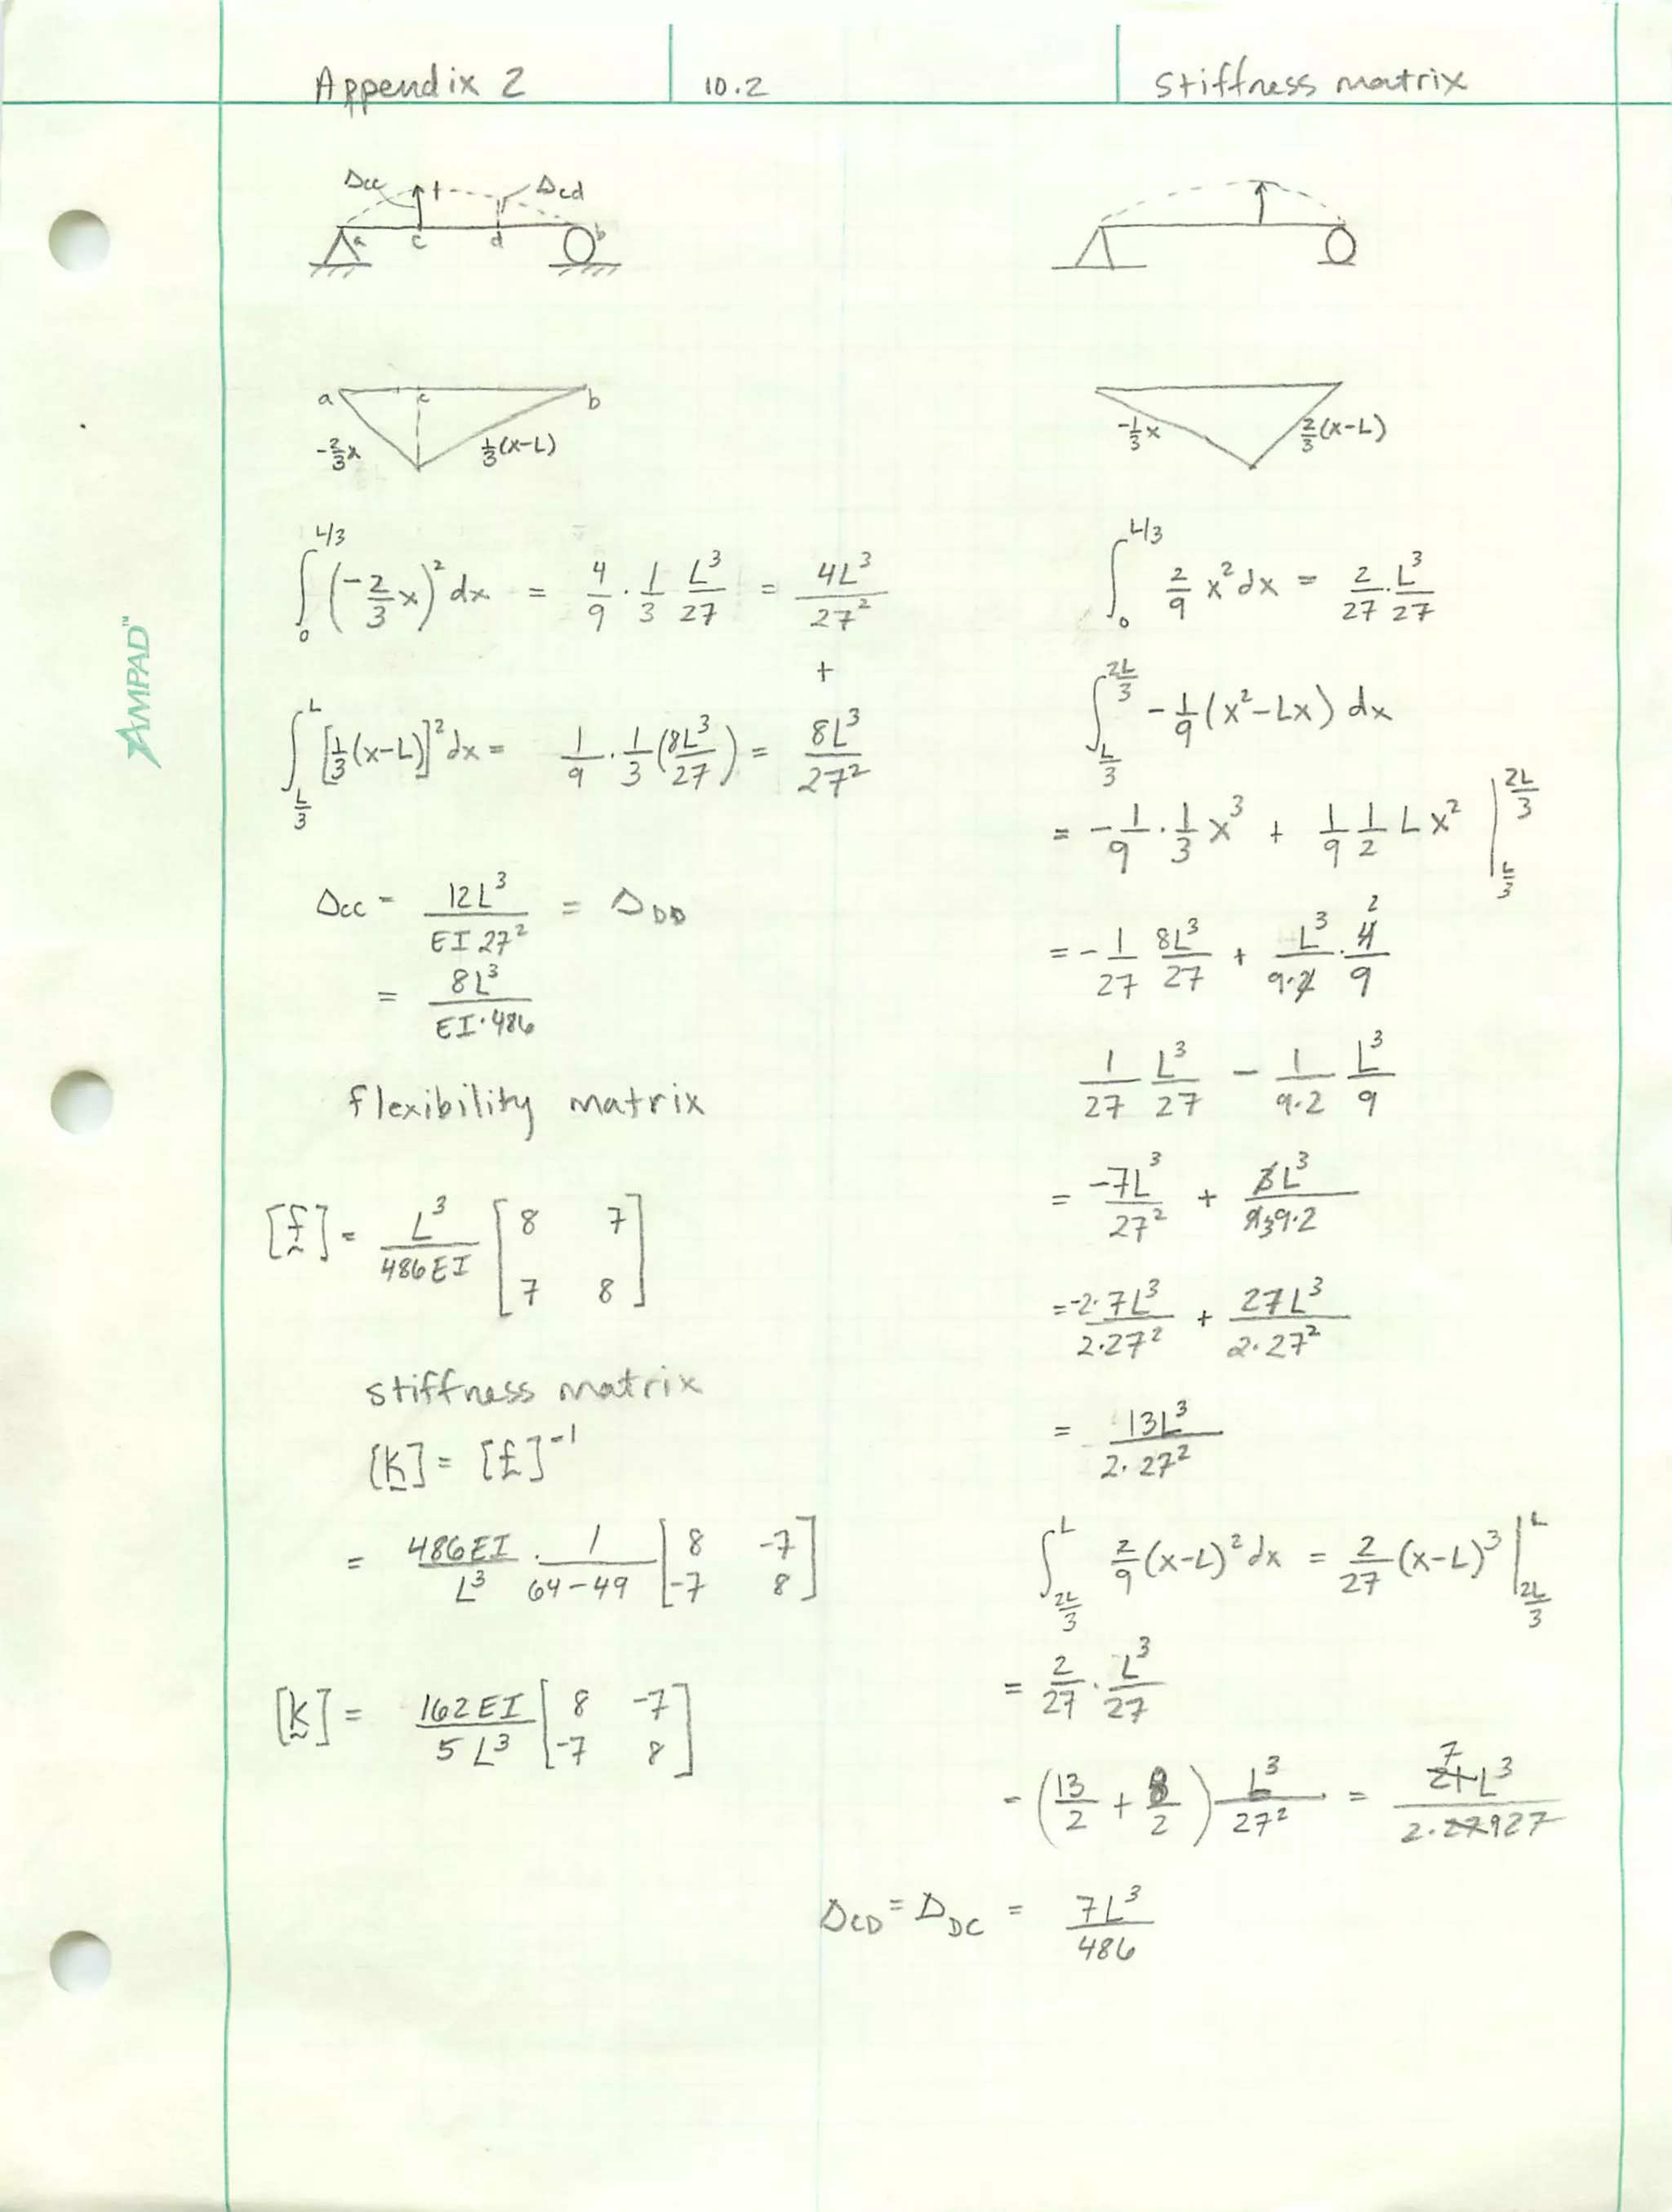 Appendix 2 10.2 Stiffness matrix
Δcc 1 Δcd
a c d b
a c b
-2/3 x 1/3 (x-L)
∫_0^{L/3} (-2/3 x)^2 dx = 4/9 · 1/3 L^3/27 = 4L^3/27^2
+
∫_{L/3}^{L} [1/3 (x-L)]^2 dx = 1/9 · 1/3 (8L^3/27) = 8L^3/27^2
Δcc = 12L^3/EI 27^2 = ΔDD
= 8L^3/EI·486
flexibility matrix
[f] = L^3/486EI [8 7
7 8]
stiffness matrix
[K] = [f]^-1
= 486EI/L^3 · 1/64-49 [8 -7
-7 8]
[K] = 162EI/5L^3 [8 -7
-7 8]
-1/3 x 2/3 (x-L)
∫_0^{L/3} 2/9 x^2 dx = 2/27 · L^3/27
∫_{L/3}^{2L/3} -1/9 (x^2-Lx) dx
= -1/9 · 1/3 x^3 + 1/9 1/2 L x^2 |_{L/3}^{2L/3}
= -1/27 8L^3/27 + L^3/9·2 · 4/9 2
1/27 L^3/27 - 1/9·2 L^3/9
= -7L^3/27^2 + 3L^3/9 3 9·2
= -2·7L^3/2·27^2 + 27L^3/2·27^2
= 13L^3/2·27^2
∫_{2L/3}^{L} 2/9 (x-L)^2 dx = 2/27 (x-L)^3 |_{2L/3}^{L}
= 2/27 · L^3/27
= (13/2 + 8/2) L^3/27^2 = 7 21L^3/2·27 9 27
ΔCD = ΔDC = 7L^3/486
AMPAD™